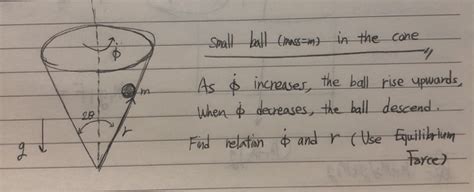 Small ball (mass=m) in the cone
As φ̇ increases, the ball rise upwards,
When φ̇ decreases, the ball descend.
Find relation φ̇ and r (Use Equilibrium
Force)
φ̇
m
2θ
r
g